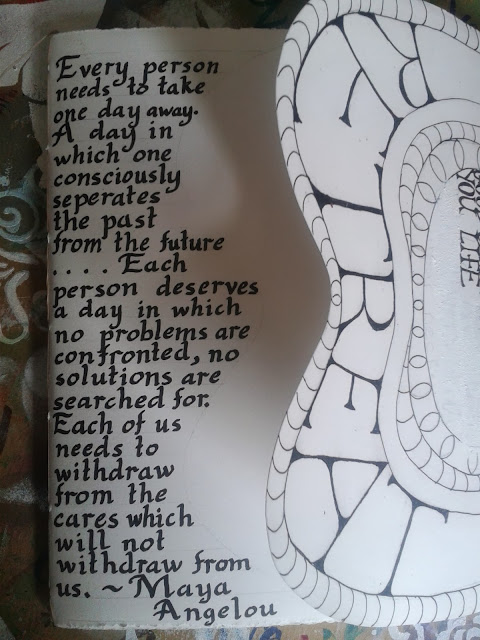 Every person
needs to take
one day away.
A day in
which one
consciously
seperates
the past
from the future
. . . . Each
person deserves
a day in which
no problems are
confronted, no
solutions are
searched for.
Each of us
needs to
withdraw
from the
cares which
will not
withdraw from
us. ~ Maya
Angelou
YOU LIFE